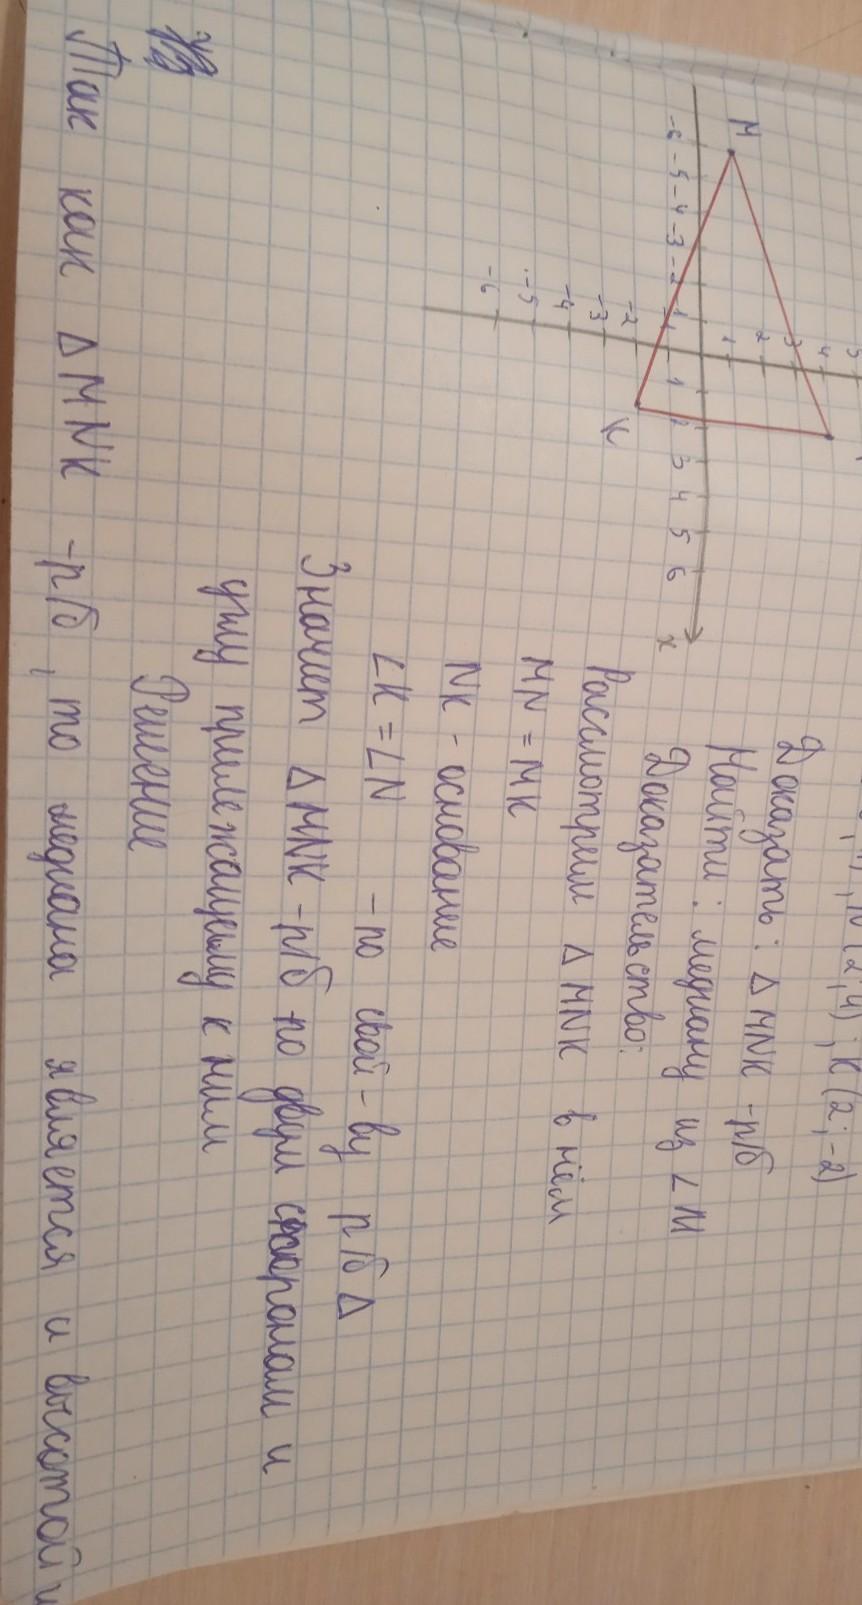 N(2;4); K(2;-2)
Доказать: Δ MNK -р/б
Найти: медиану из ∠M
Доказательство:
Рассмотрим Δ MNK в нём
MN = MK
NK - основание
∠K = ∠N - по свой-ву р/б Δ
Значит Δ MNK -р/б по двум сторонам и
углу прилежащему к ним
Решение
Так как Δ MNK -р/б, то медиана является и высотой и
M
K
x
-6 -5 -4 -3 -2 -1 1 2 3 4 5 6
5
4
3
2
1
-1
-2
-3
-4
-5
-6